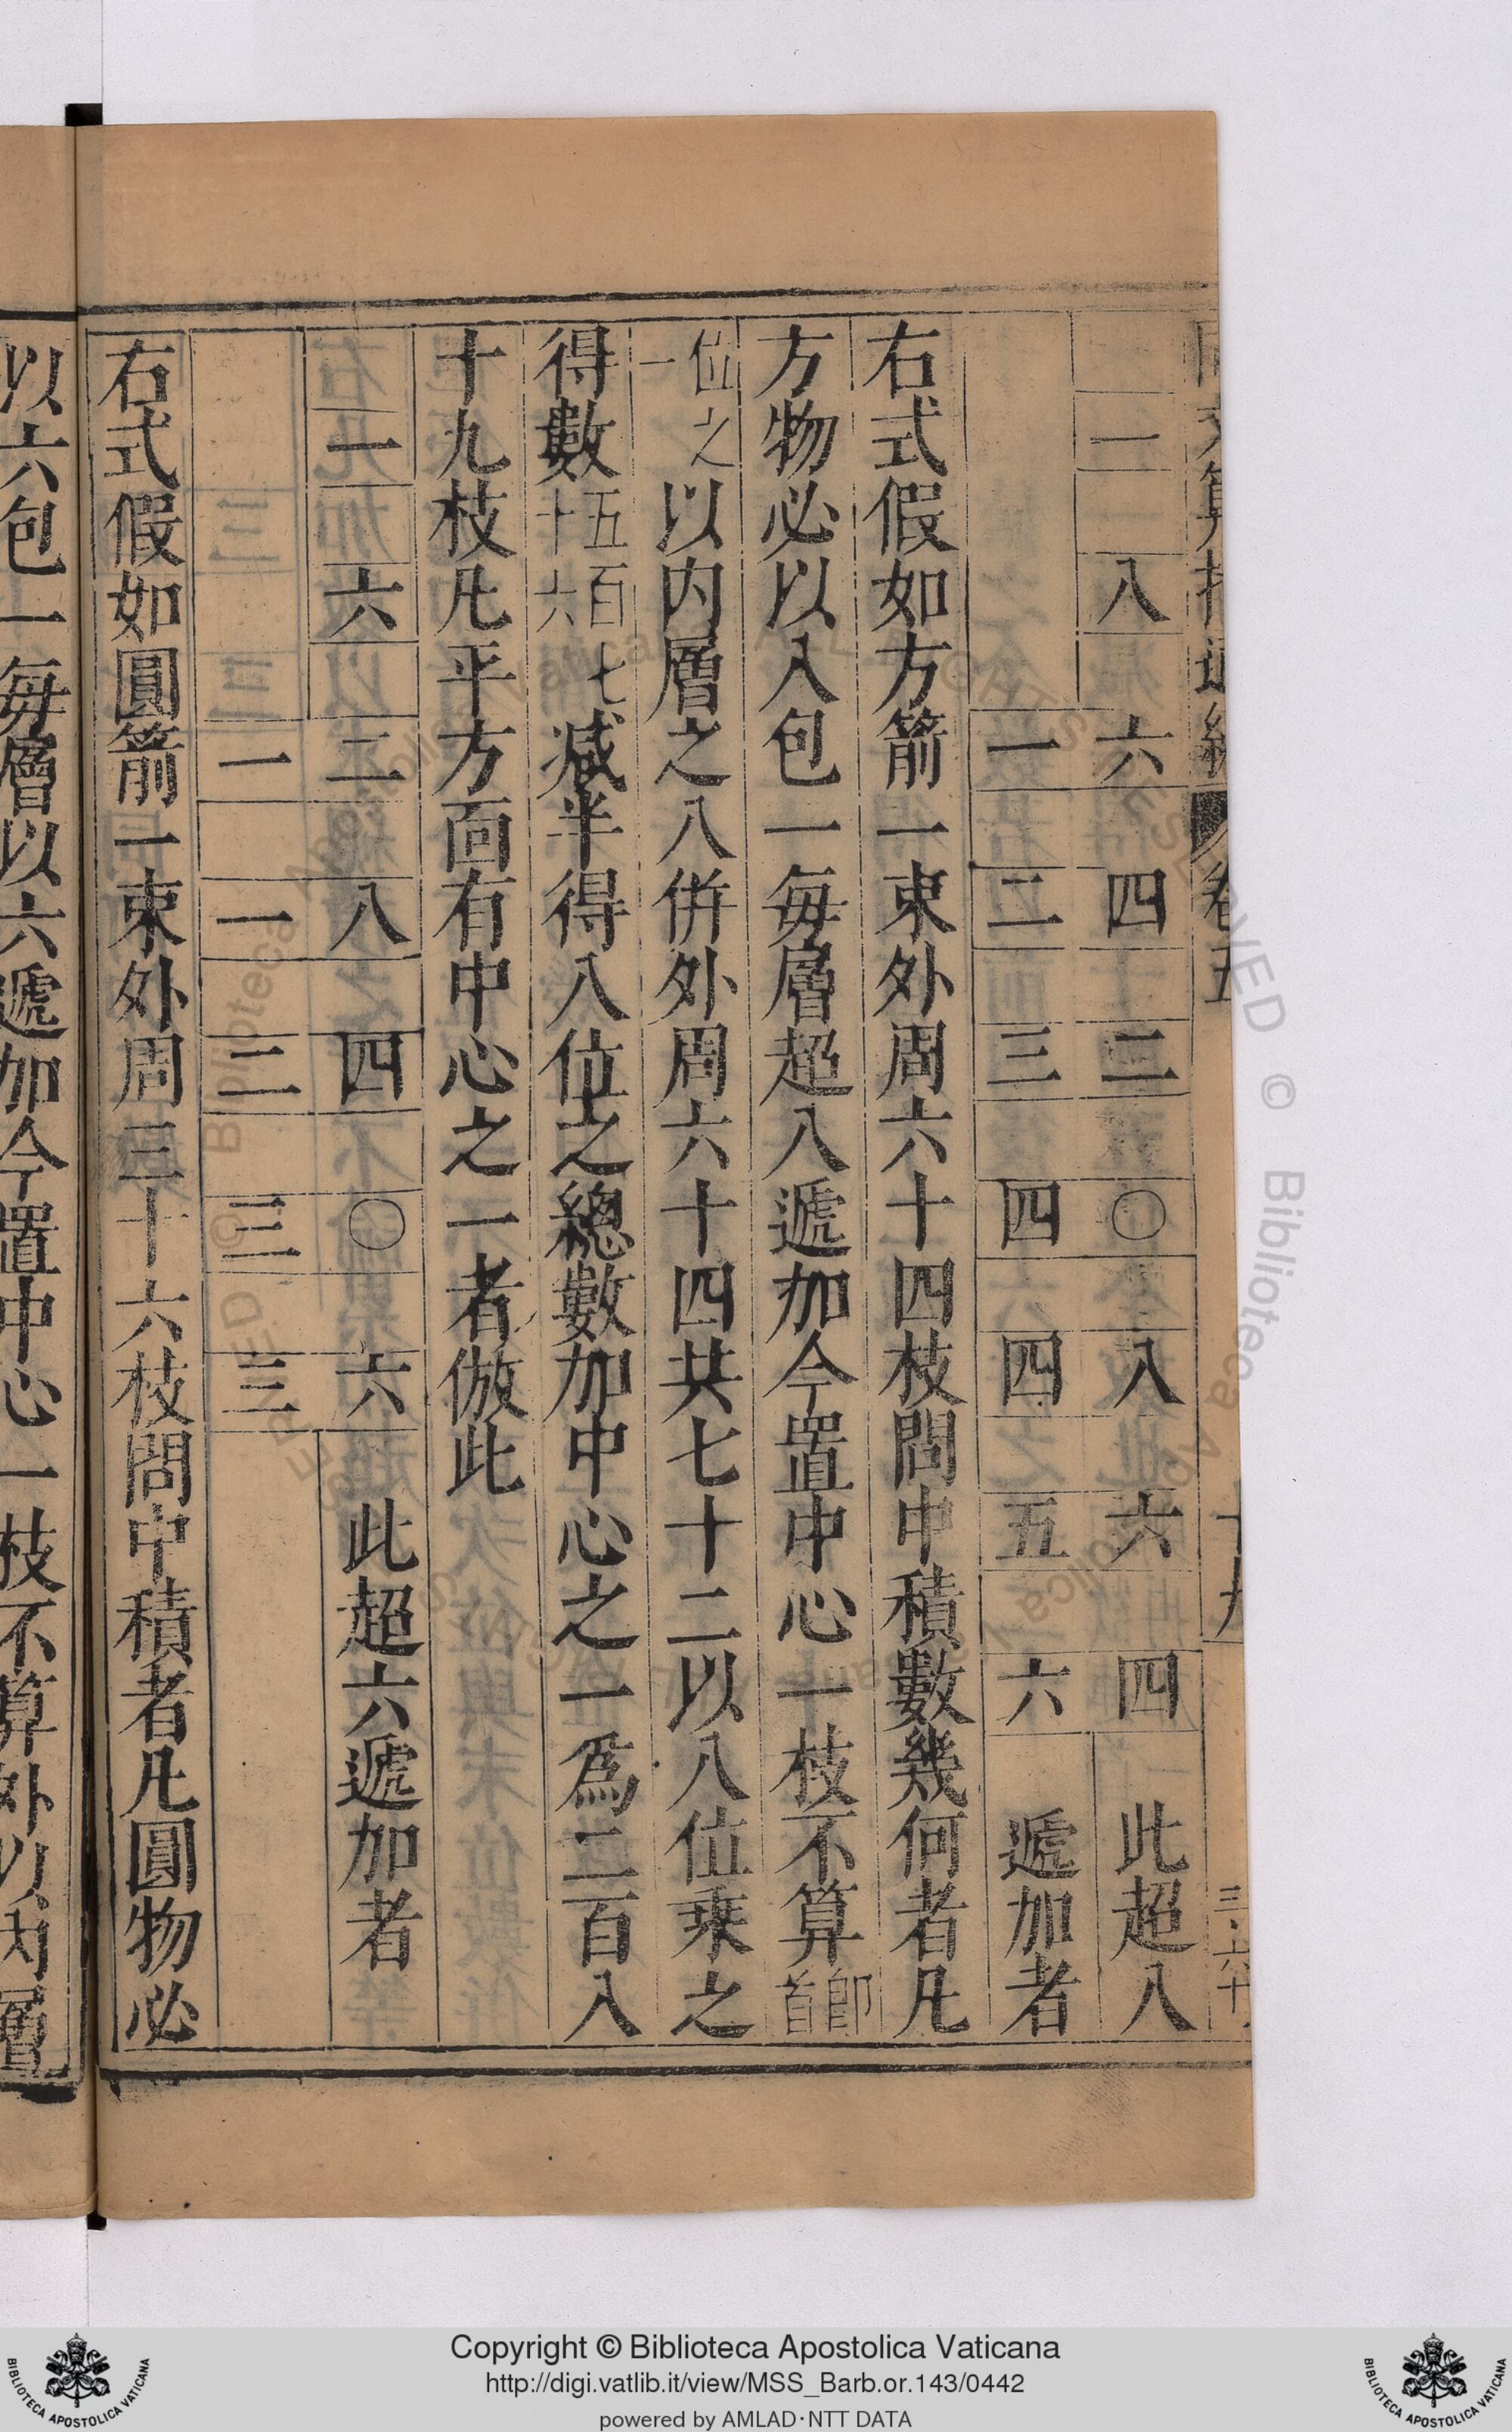 一八六四二〇八六四此超八
一二三四四五六遞加者
右式假如方箭一束外周六十四枝問中積數幾何者凡
方物必以八包一每層超八遞加今置中心一枝不算卽首
位之一以内層之八併外周六十四共七十二以八位乘之
得數五百七十六減半得八位之總數加中心之一爲二百八
十九枝凡平方面有中心之一者倣此
一六二八四〇六此超六遞加者
一一二三三
右式假如圓箭一束外周三十六枝問中積者凡圓物必
以六包一每層以六遞加今置中心一枝不算外以內層
卷五
十九
Copyright © Biblioteca Apostolica Vaticana
http://digi.vatlib.it/view/MSS_Barb.or.143/0442
powered by AMLAD·NTT DATA
BIBLIOTECA APOSTOLICA VATICANA
BIBLIOTECA APOSTOLICA VATICANA